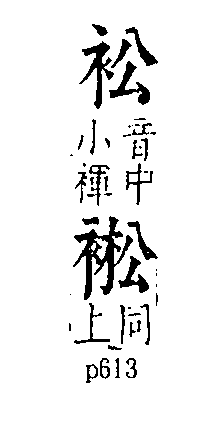 衳
音中
小褌
同
上
p613